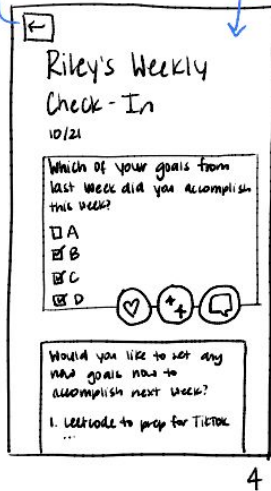 ←
Riley's Weekly
Check-In
10/21
Which of your goals from
last week did you accomplish
this week?
☐ A
☑ B
☑ C
☑ D
Would you like to set any
new goals now to
accomplish next week?
1. Leetcode to prep for TikTok
...
4